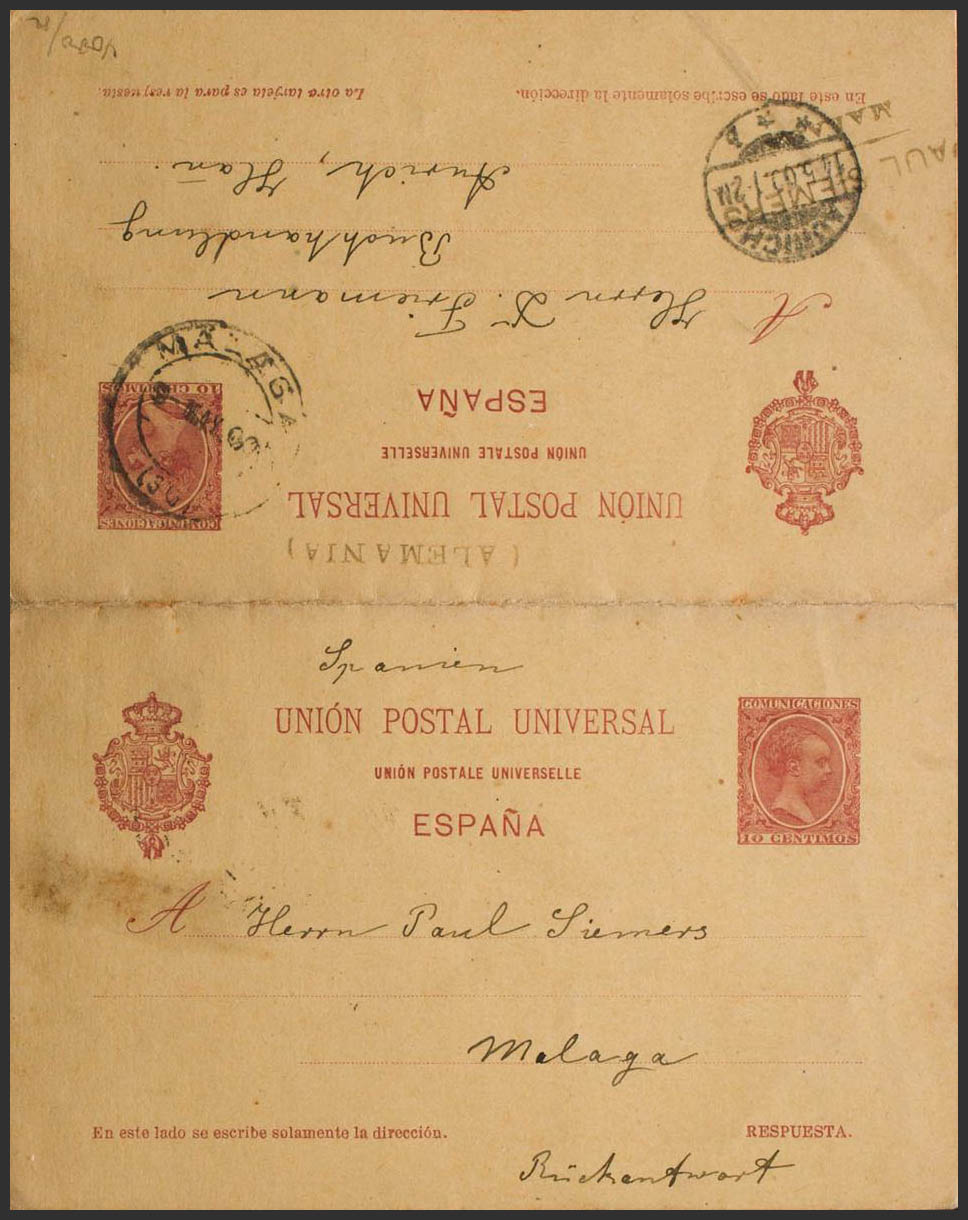 En este lado se escribe solamente la dirección.
La otra tarjeta es para la respuesta.
Aurich, Han.
Buchhandlung
Herrn D. Friemann
A
ESPAÑA
UNIÓN POSTALE UNIVERSELLE
UNIÓN POSTAL UNIVERSAL
COMUNICACIONES
10 CENTIMOS
MALAGA
AURICH
PAUL SIEMERS
(ALEMANIA)
Spanien
UNIÓN POSTAL UNIVERSAL
UNIÓN POSTALE UNIVERSELLE
ESPAÑA
COMUNICACIONES
10 CENTIMOS
A Herrn Paul Siemers
Malaga
En este lado se escribe solamente la dirección.
RESPUESTA.
Rückantwort